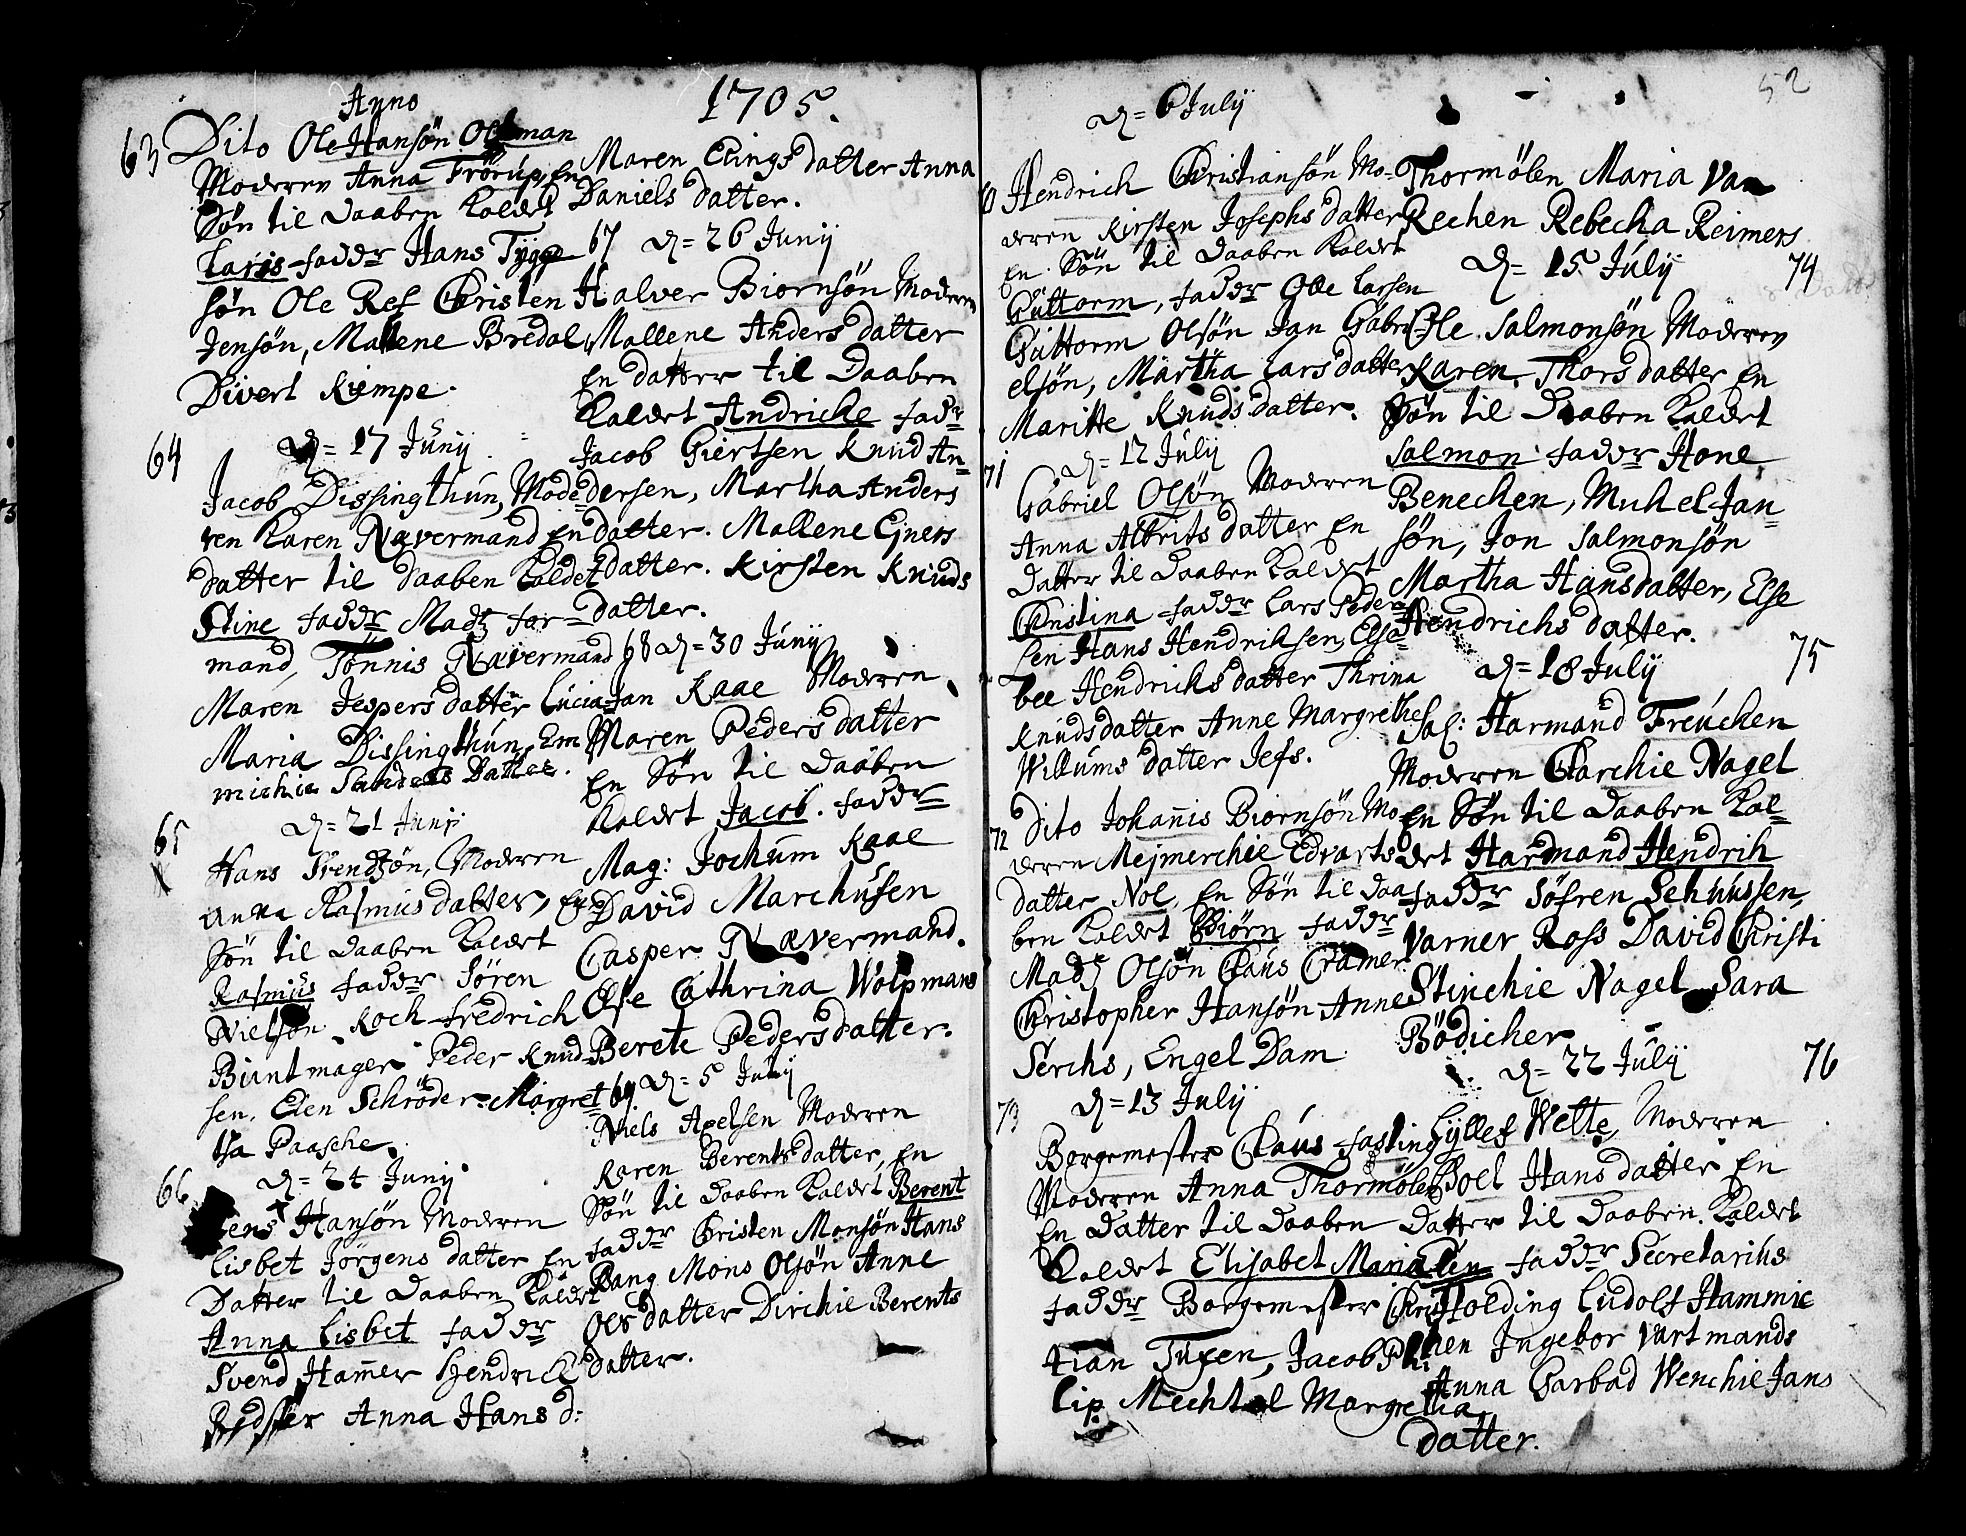 Anno 1705.
63 Dito Ole Hansøn Oltman
Moderen Anna Frörup, En
Søn til Daaben Kaldet
Laris Faddr Hans Tygge
søn Ole Ref Christen
Jensøn, Mallene Bredal,
Divert Kempe.
64 D= 17 Junij
Jacob Dissingthun, Mode
ren Karen Nævermand En
datter til Daaben Kaldet
Stine Faddr Madz Far
mand, Tönnis Nævermand
Maren Jespers datter Lucia
Maria Dissingthun, Em
michie datter.
65 D= 21 Junij
Hans Svendsøn, Moderen
Anna Rasmus datter, En
Søn til Daaben Kaldet
Rasmus Faddr Sören
Nielsøn Koch Fredrich
Buntmager Peder Knud
sen, Elen Schröder Margret
tha Paasche.
66 D= 24 Junij
Jens Hansøn Moderen
Lisbet Jörgens datter En
Datter til Daaben Kaldet
Anna Lisbet Faddr
Svend Ham̄er Hendrich
Anna Hans d:
Maren Elings datter Anna
Daniels datter.
67 D= 26 Junij
Halver Biornsøn Moderen
Mallene Anders datter
En datter til Daaben
Kaldet Andricke Faddr
Jacob Giertsen Knud An
dersen, Martha Anders
datter. Mallene Ejners
datter. Kirsten Knuds
datter.
68 D= 30 Junij
Jan Kaae Moderen
Maren Peders datter
En Søn til Daaben
Kaldet Jacob. Faddr
Mag: Jochum Kaae
David Marchusen
Casper Nævermand.
Else Cathrina Wolpmans
Berete Peders datter.
69 D= 5 Julij
Niels Axelsen Moderen
Karen Berents datter, En
Søn til Daaben Kaldet Berent
Faddr Christen Monsøn Hans
Bang Mons Olsøn Anne
Oles datter Dirchie Berents
datter.
52
D= 6 Julij
Hendrich Christiansøn Mo-
deren Kirsten Josephs datter
En Søn til Daaben Kaldet
Guttorm, Faddr Olle Larsen
Guttorm Olsøn Jan Gabri
elsøn, Martha Lars datter
Maritte Knuds datter.
71 D= 12 Julij
Gabriel Olsøn Moderen
Anna Albrits datter En
Datter til Daaben Kaldet
Christina Faddr Lars Peder
sen Hans Hendriksen, Elsa
bee Hendrichs datter Thrina
Knudsdatter Anne Margrethe
Willums datter Jefs.
72 Dito Johan̄is Biornsøn Mo
deren Mejmerchie Edvarts
datter Nol, En Søn til Daa
ben Kaldet Biørn Faddr
Madz Olsøn Claus Cramer
Christopher Hansøn Anne
Serchs, Engel Dam
73 D= 13 Julij
Borgemester Claus Fasting
Moderen Anna Thormølen
En Datter til Daaben
Kaldet Elisabet Maria
Faddr Borgemester Chris
tian Tuxen, Jacob Phi
lip Mechtel Margretha
Thormølen Maria Van
Rechen Rebecha Reimers
D= 15 Julij 74
Ole Salmonsøn Moderen
Karen Thors datter En
Søn til Daaben Kaldet
Salmon Faddr Hone
Benechen, Michel Jan
søn, Jon Salmonsøn
Martha Hansdatter, Else
Hendrichs datter.
D= 18 Julij 75
Sal: Harmand Freuchen
Moderen Charchie Nagel
En Søn til Daaben Kal
det Harmand Hendrih
Faddr Söfren Sehuussen,
Varner Ross David Christi
Stinchie Nagel Sara
Bödicher
D= 22 Julij 76
Lyllef Welte, Moderen
Boel Hans datter En
Datter til Daaben. Kaldet
Faddr Secretarius
Tolding Ludolf Hammic
hen Ingebor Vartmands
Anna Garbad Wenchie Jans
datter.